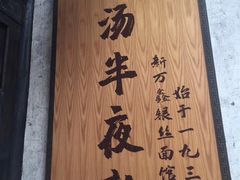 始于一九三
新万鑫银丝面馆
汤半夜